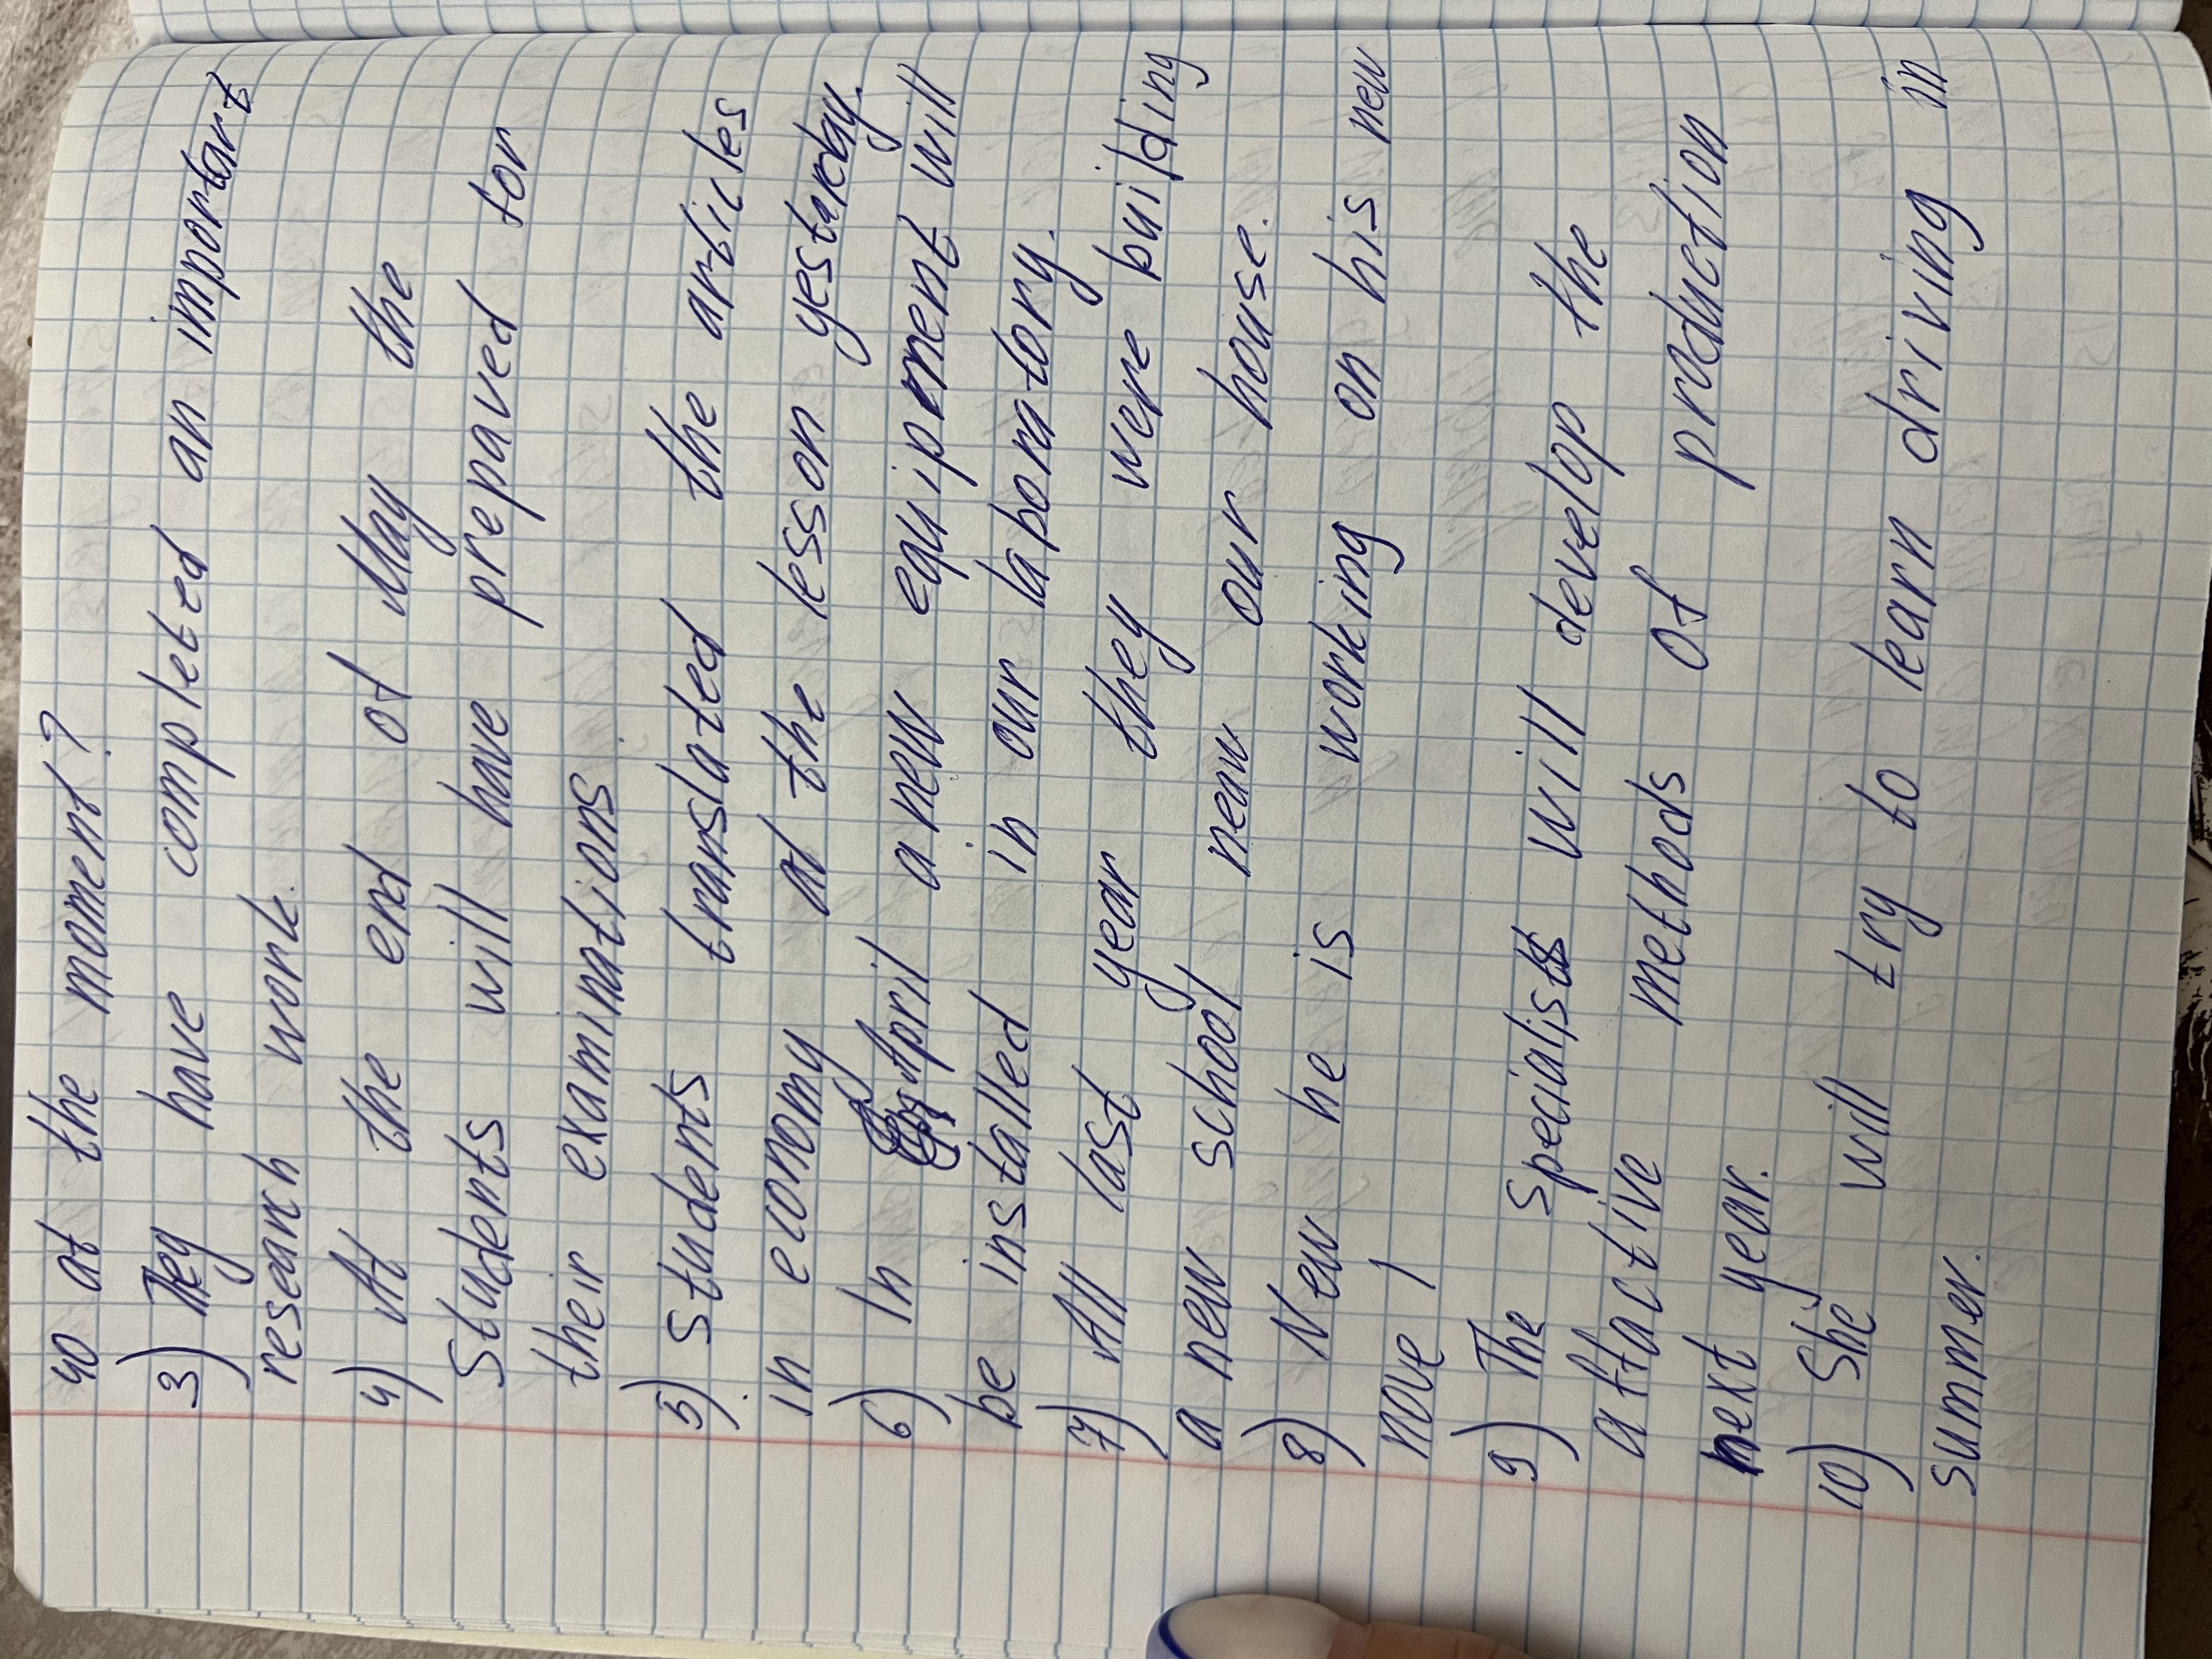 40 at the moment?
3) They have completed an important
research work.
4) At the end of May the
Students will have prepaved for
their examinations.
5) Students translated the articles
in economy at the lesson yesterday.
6) In April a new equipment will
be installed in our laboratory.
7) All last year they were building
a new school near our house.
8) New he is working on his new
move 1
9) The specialists will develop the
affactive methods of production
next year.
10) She will try to learn driving in
summer.